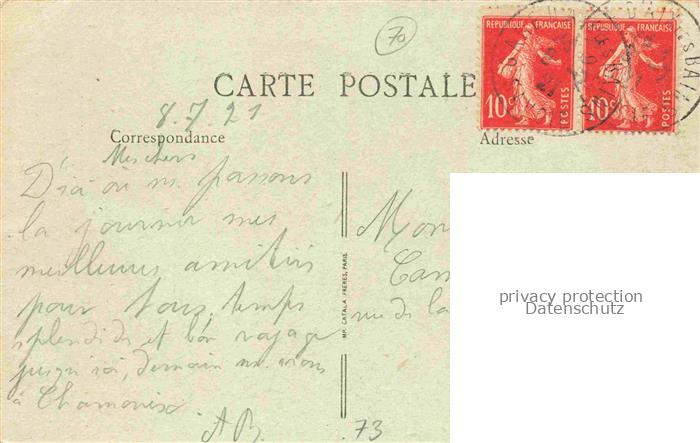 70
REPUBLIQUE FRANÇAISE
10c
POSTES
REPUBLIQUE FRANÇAISE
10c
POSTES
CARTE POSTALE
8.7.21
Correspondance
Adresse
Mes chers
D'ici où ns. passons
la journée mes
meilleures amitiés
pour tous. temps
splendide et bon voyage
jusqu'ici, demain ns. irons
à Chamonix
A B.
73
MP. CATALA FRÈRES, PARIS
Mon
rue de la
privacy protection
Datenschutz